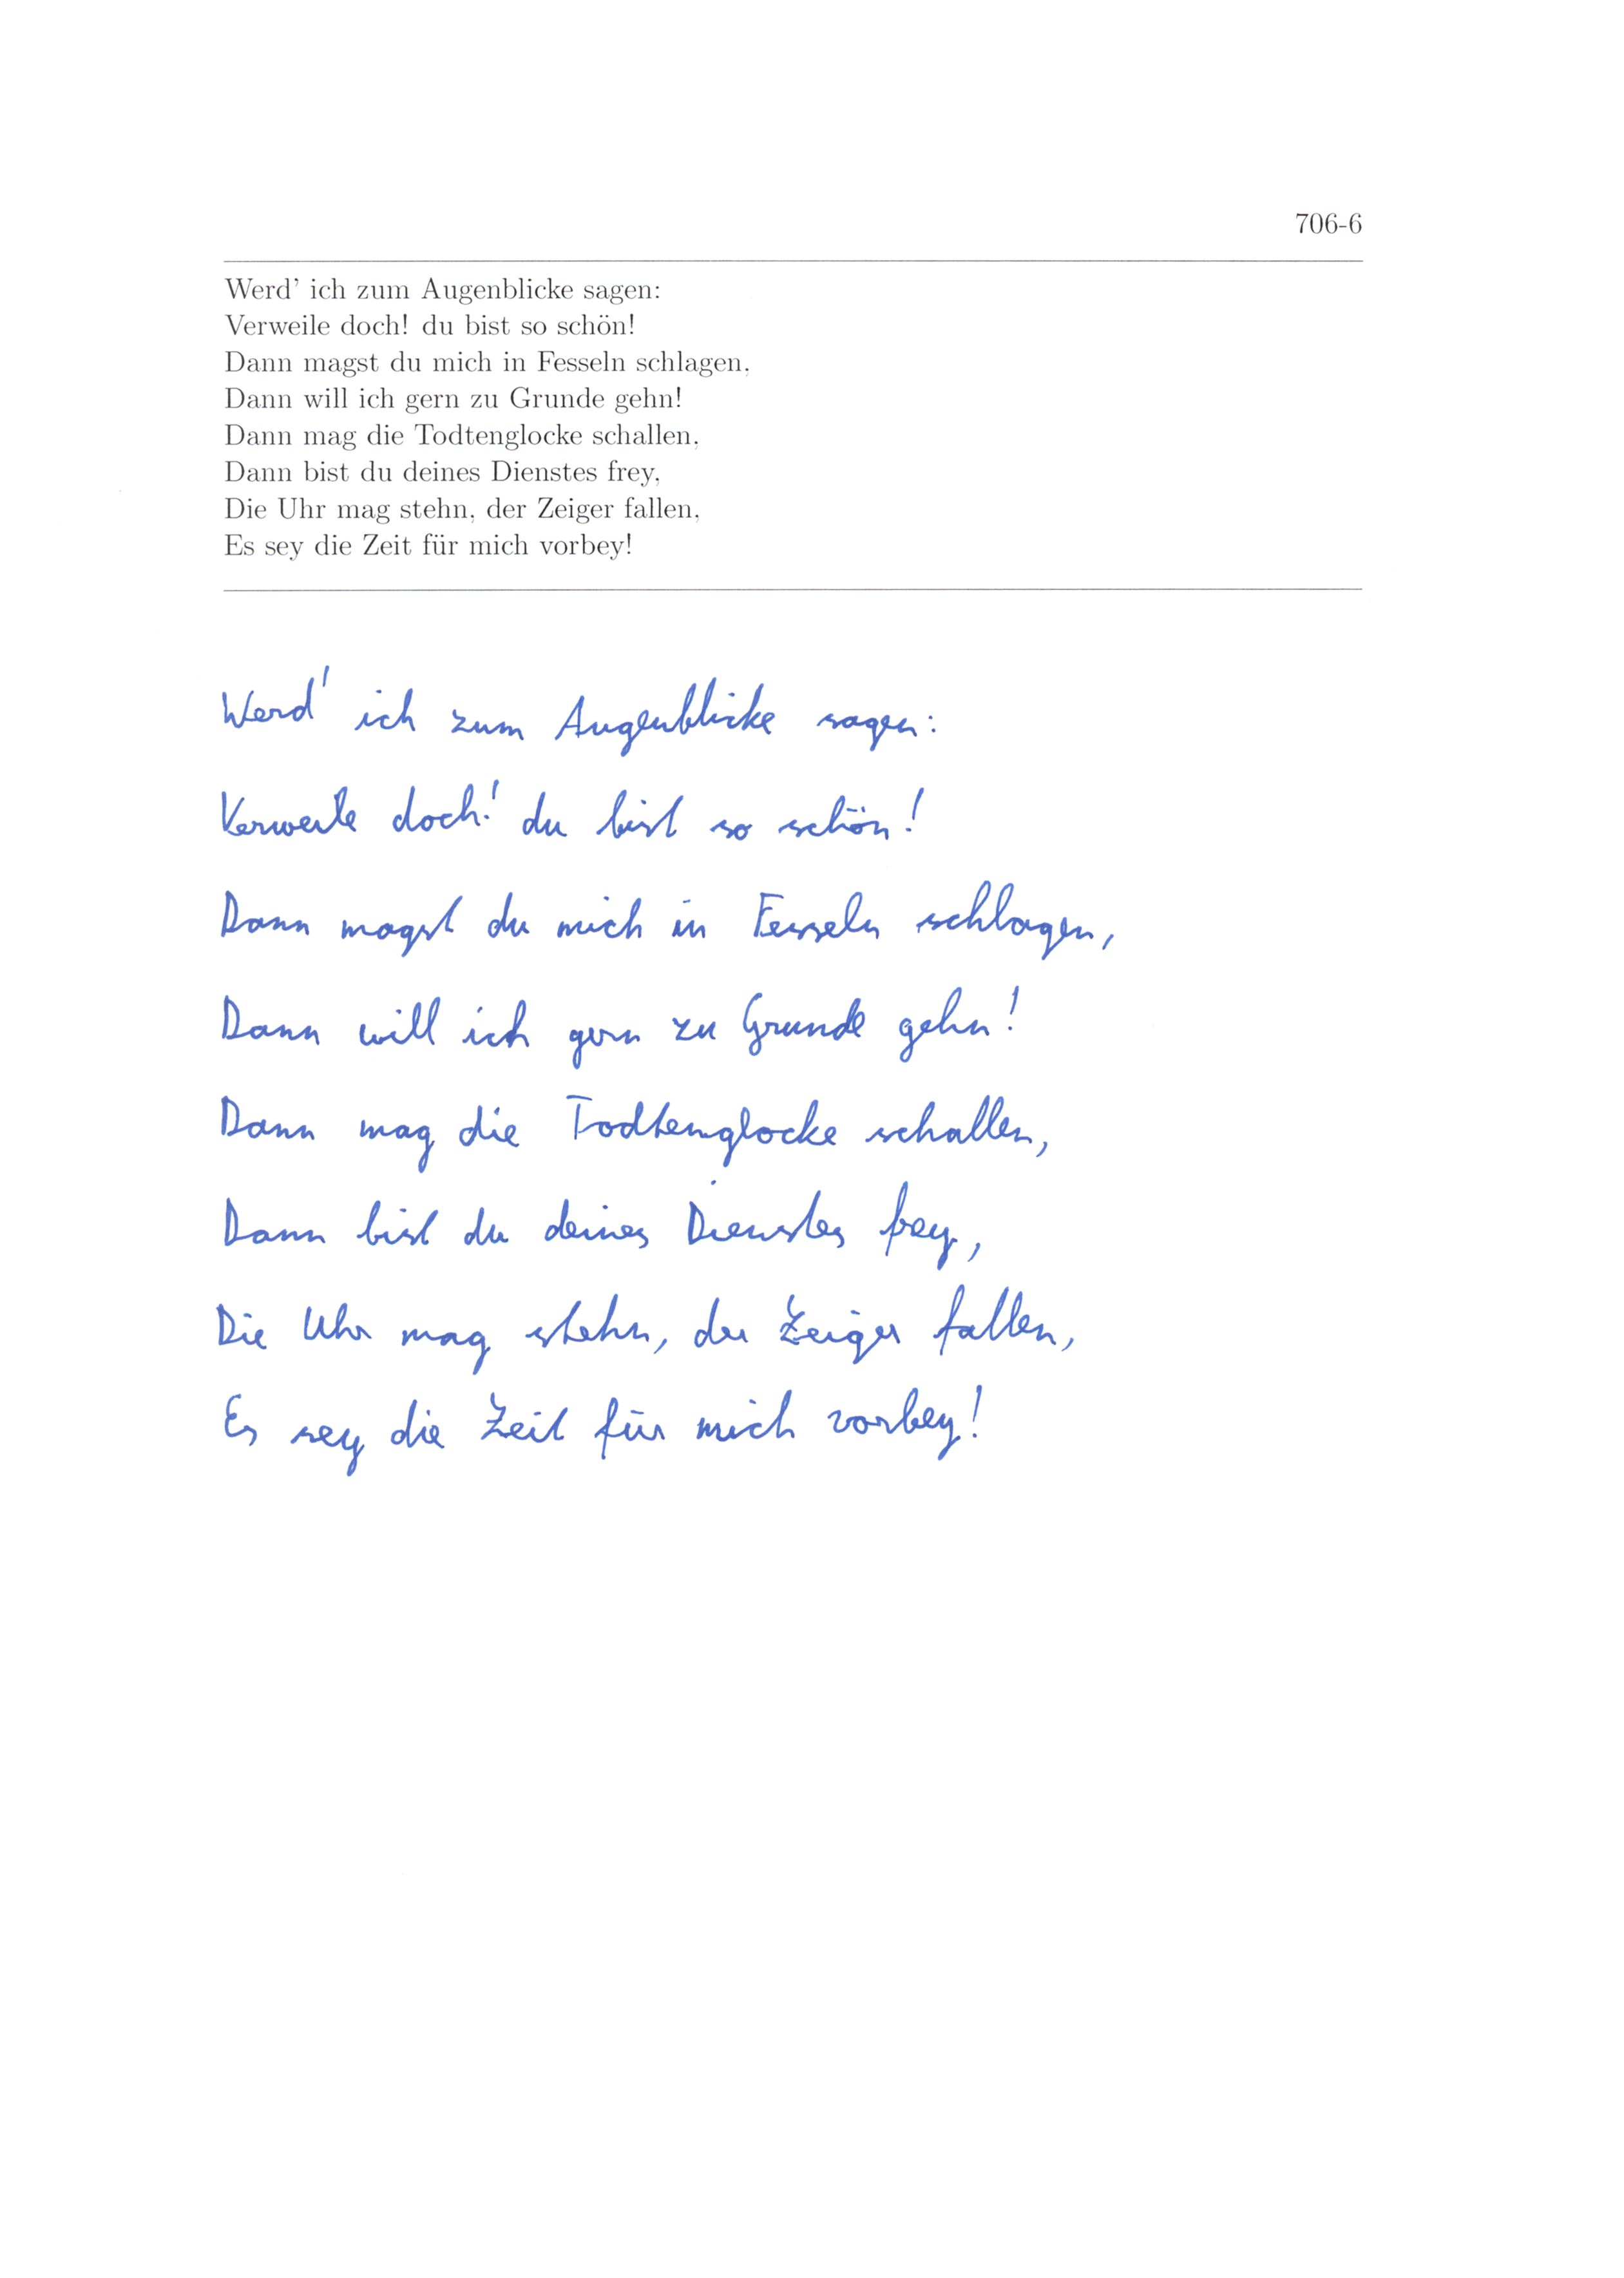 706-6
Werd' ich zum Augenblicke sagen:
Verweile doch! du bist so schön!
Dann magst du mich in Fesseln schlagen,
Dann will ich gern zu Grunde gehn!
Dann mag die Todtenglocke schallen,
Dann bist du deines Dienstes frey,
Die Uhr mag stehn, der Zeiger fallen,
Es sey die Zeit für mich vorbey!
Werd' ich zum Augenblicke sagen:
Verweile doch! du bist so schön!
Dann magst du mich in Fesseln schlagen,
Dann will ich gern zu Grunde gehn!
Dann mag die Todtenglocke schallen,
Dann bist du deines Dienstes frey,
Die Uhr mag stehn, der Zeiger fallen,
Es sey die Zeit für mich vorbey!